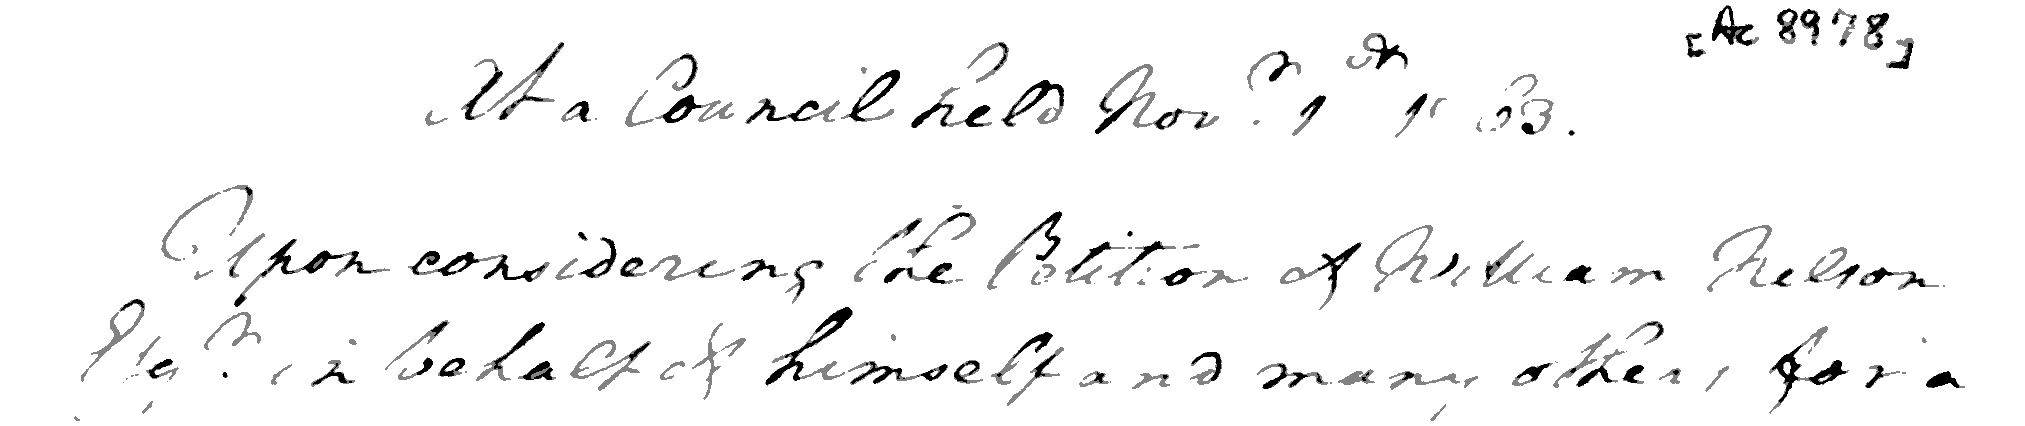 [Ac 8978]
At a Council held Novr. 1st 1763.
Upon considering the Petition of William Nelson
Esqr. in behalf of himself and many others, for a